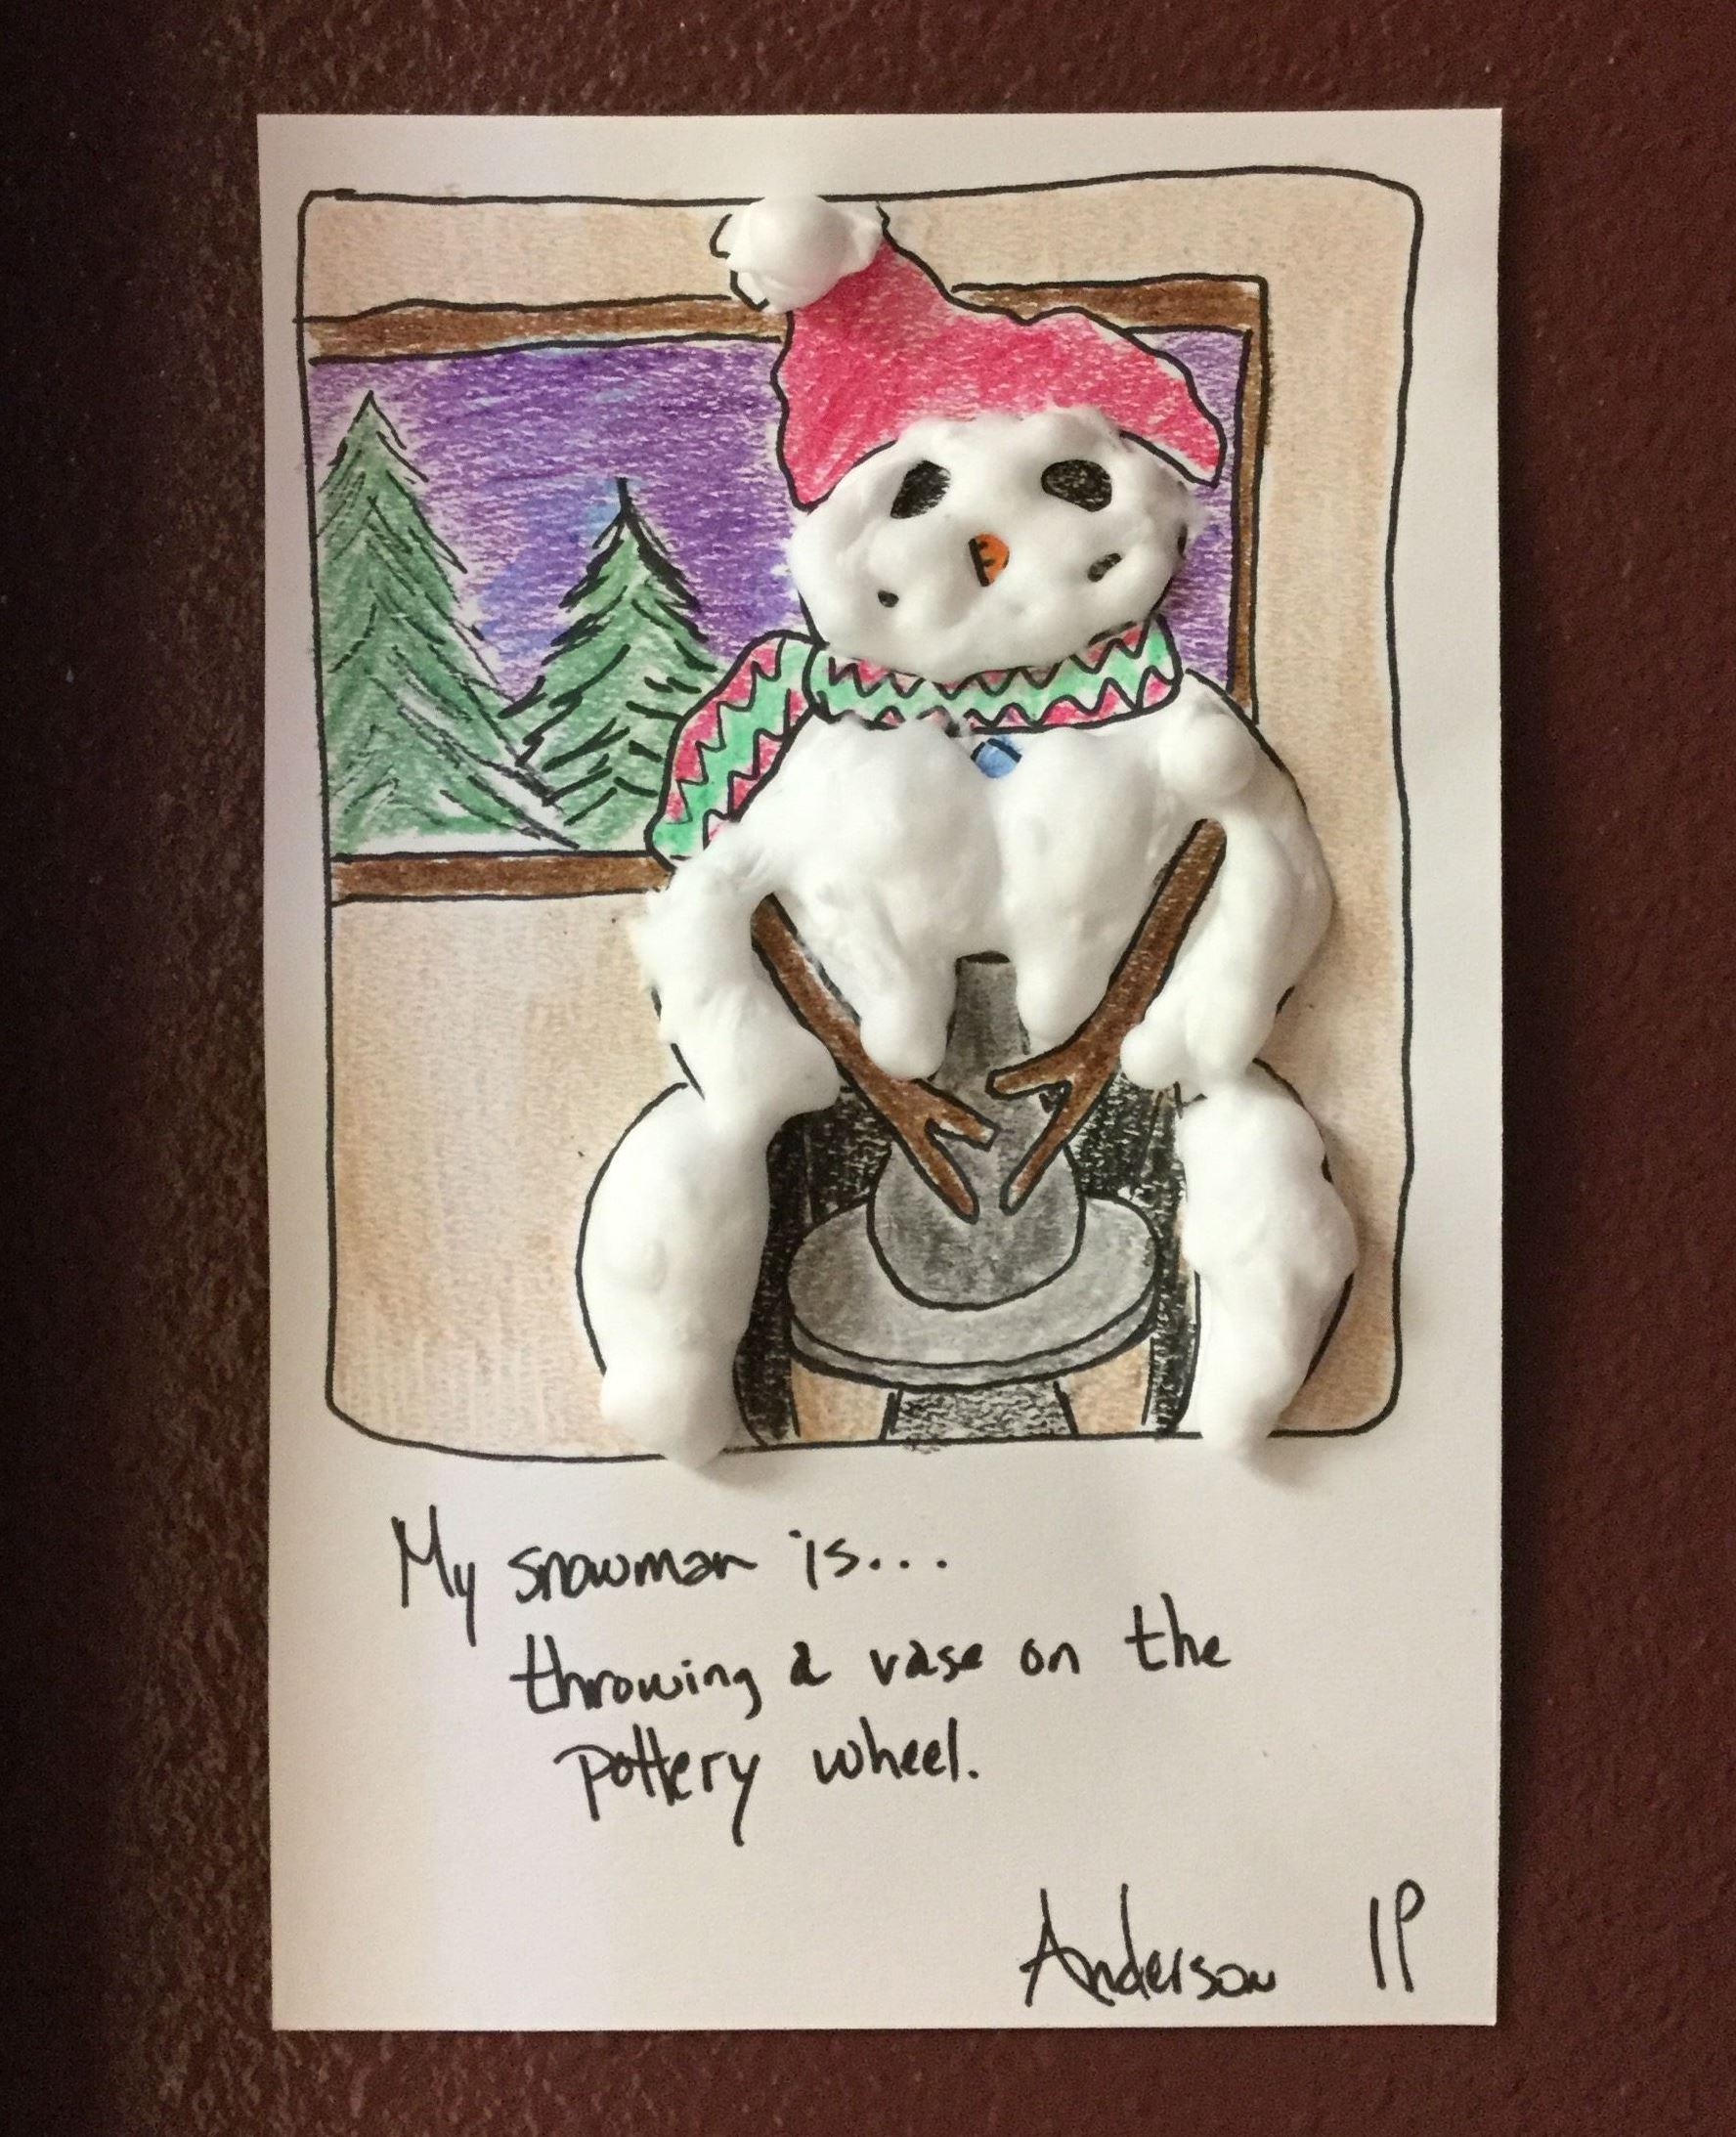 My snowman is...
throwing a vase on the
pottery wheel.
Anderson 1P